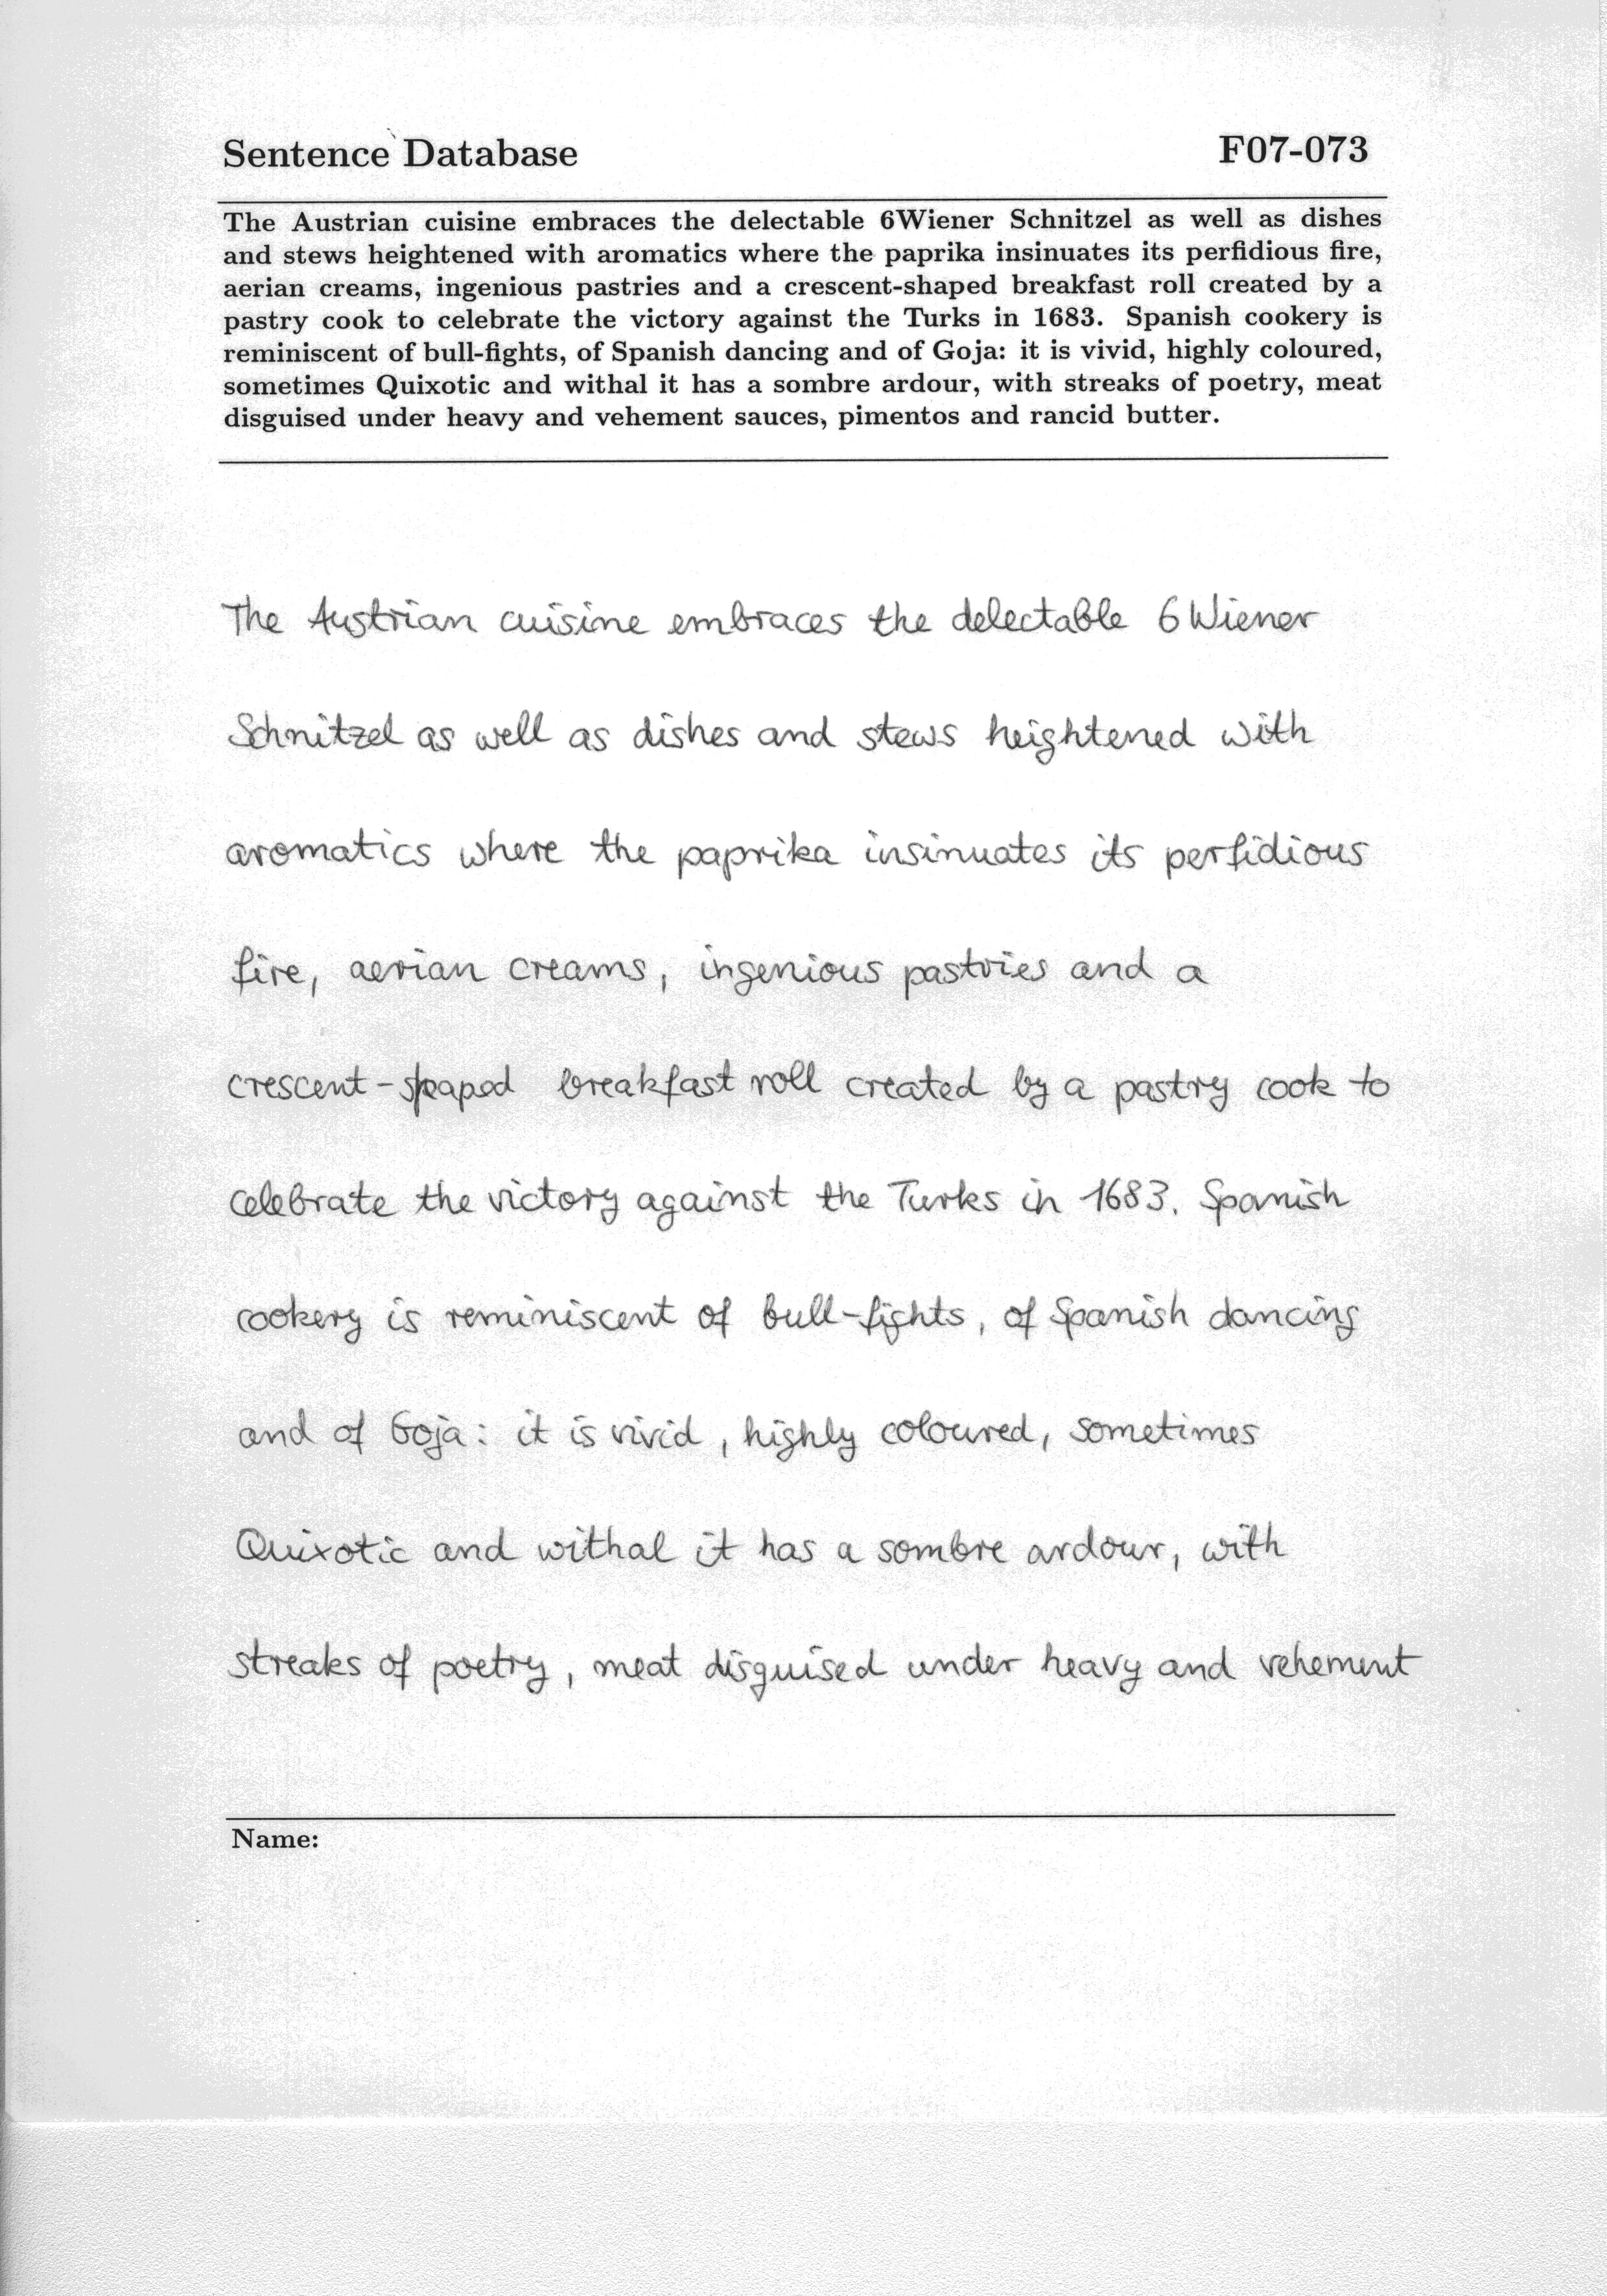 Sentence Database F07-073
The Austrian cuisine embraces the delectable 6Wiener Schnitzel as well as dishes
and stews heightened with aromatics where the paprika insinuates its perfidious fire,
aerian creams, ingenious pastries and a crescent-shaped breakfast roll created by a
pastry cook to celebrate the victory against the Turks in 1683. Spanish cookery is
reminiscent of bull-fights, of Spanish dancing and of Goja: it is vivid, highly coloured,
sometimes Quixotic and withal it has a sombre ardour, with streaks of poetry, meat
disguised under heavy and vehement sauces, pimentos and rancid butter.
The Austrian cuisine embraces the delectable 6Wiener
Schnitzel as well as dishes and stews heightened with
aromatics where the paprika insinuates its perfidious
fire, aerian creams, ingenious pastries and a
crescent-shaped breakfast roll created by a pastry cook to
celebrate the victory against the Turks in 1683. Spanish
cookery is reminiscent of bull-fights, of Spanish dancing
and of Goja: it is vivid, highly coloured, sometimes
Quixotic and withal it has a sombre ardour, with
streaks of poetry, meat disguised under heavy and vehement
Name: